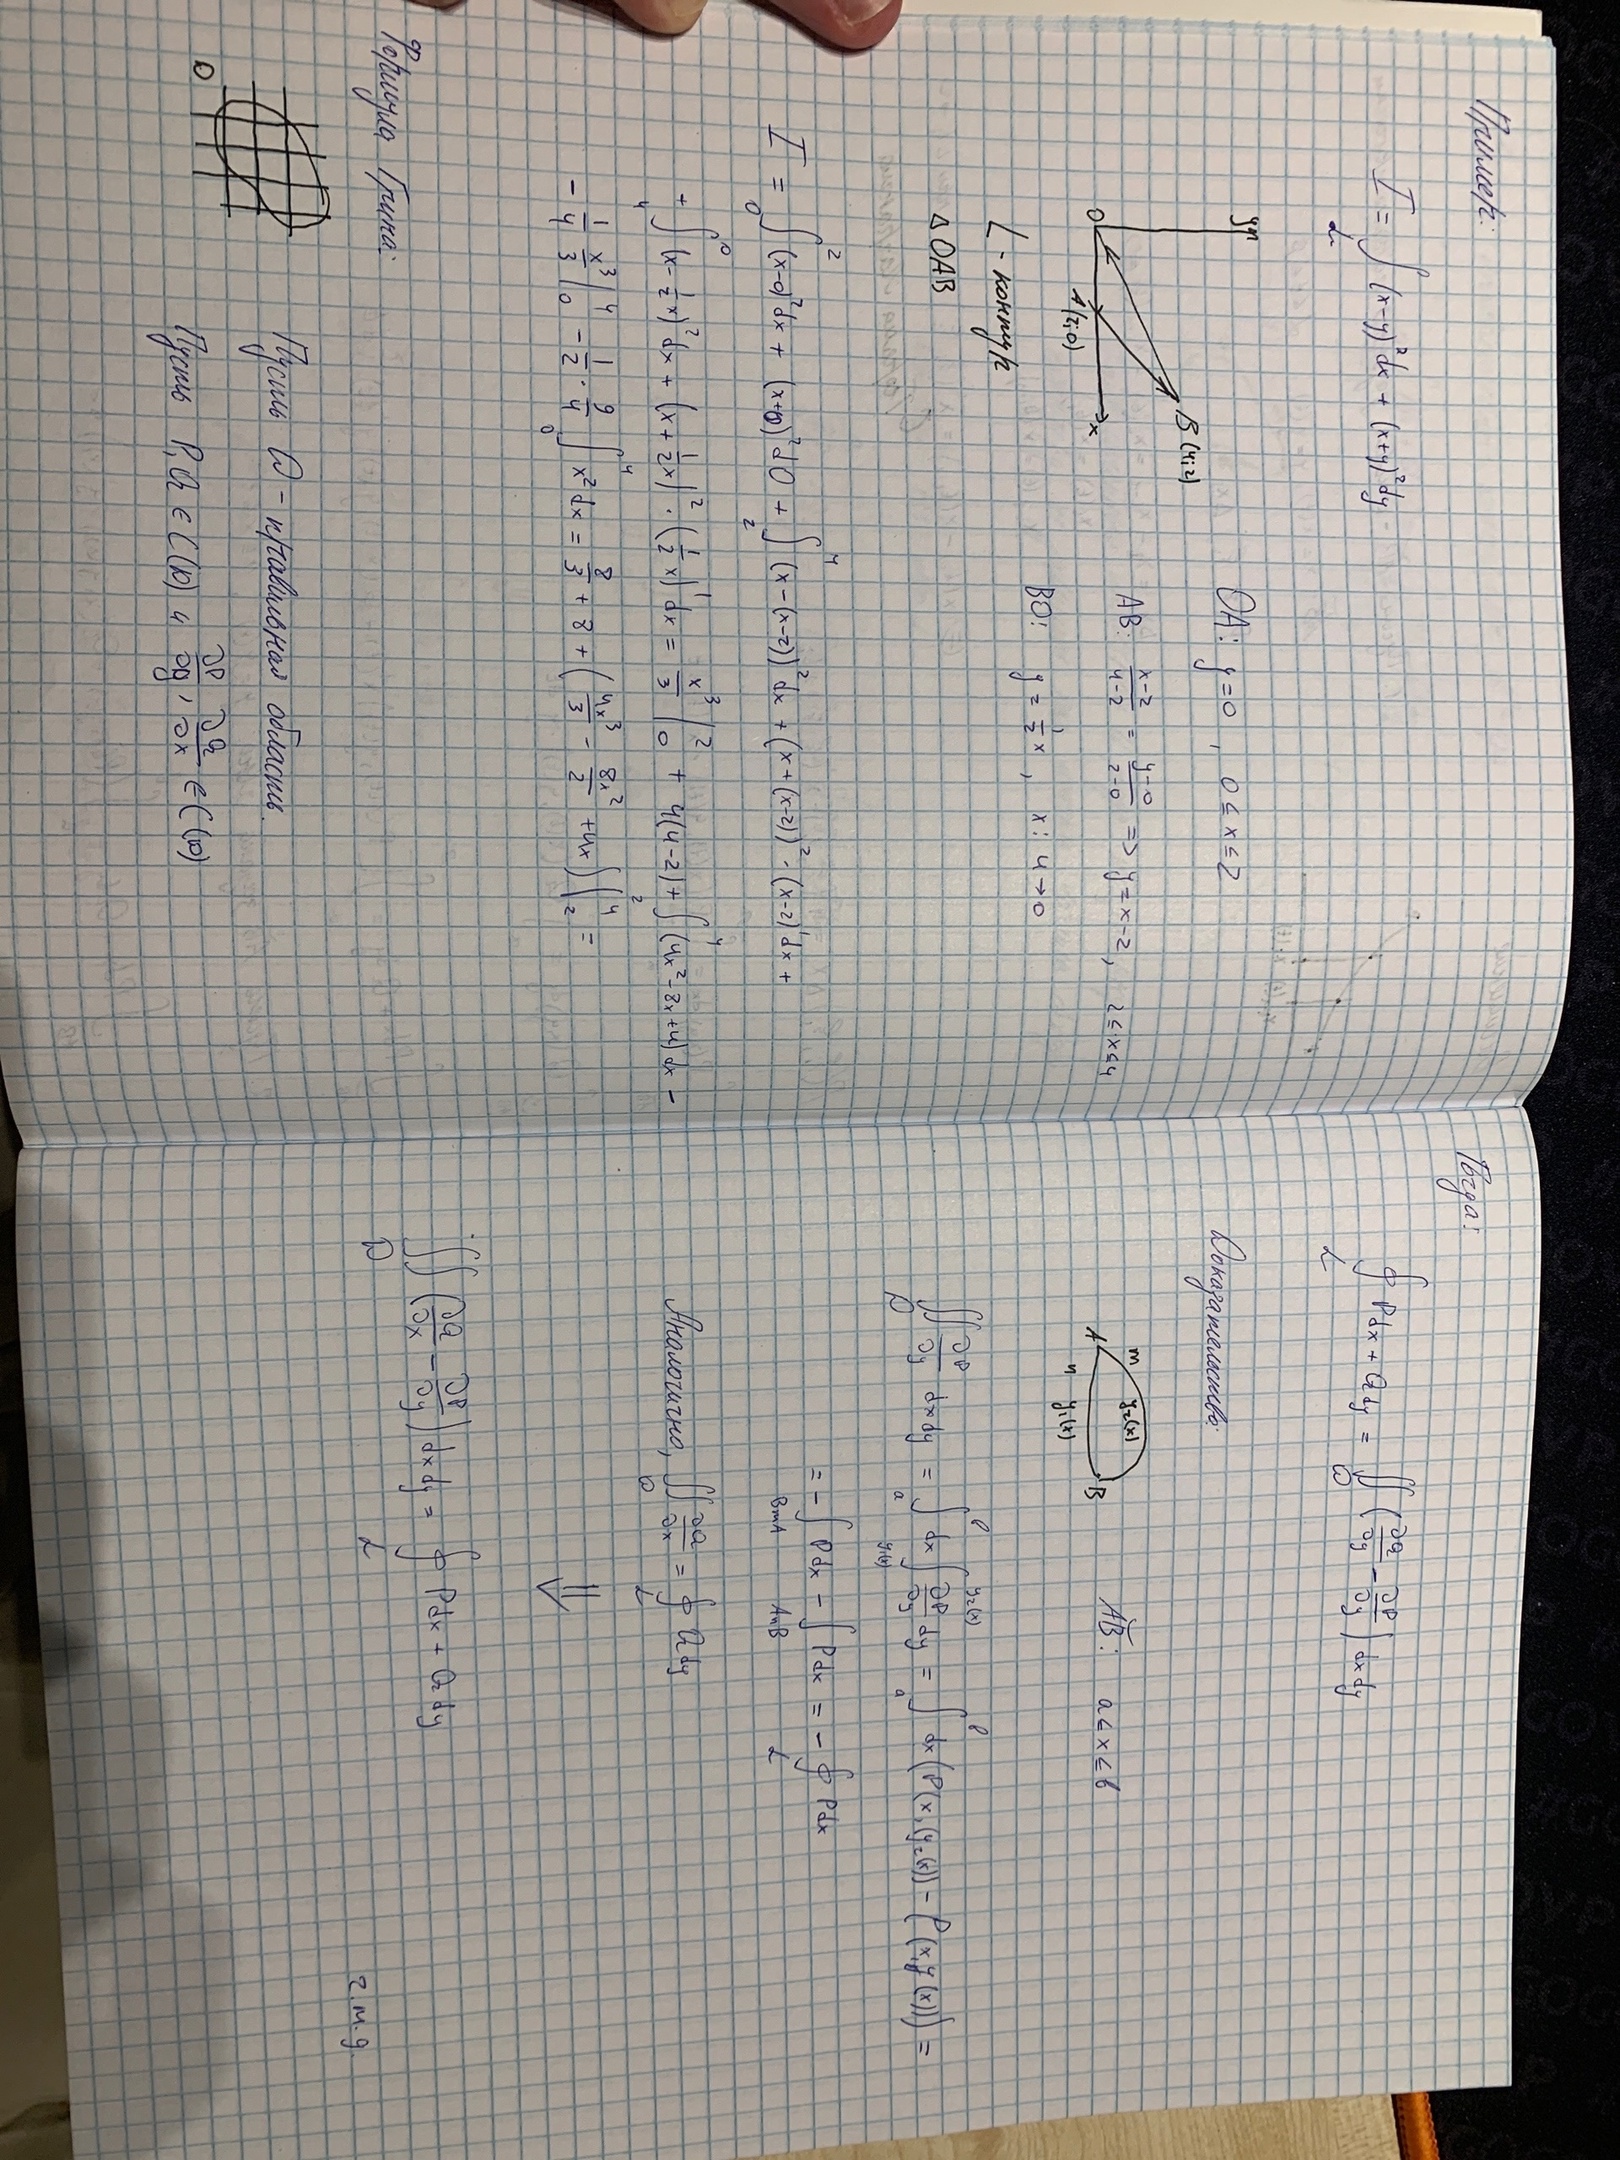 Пример:
I = ∫_L (x-y)²dx + (x+y)²dy
y
B (4;2)
0
A (2;0)
x
OA: y=0 , 0 ≤ x ≤ 2
AB: (x-2)/(4-2) = (y-0)/(2-0) => y = x-2 , 2 ≤ x ≤ 4
BO: y = 1/2 x , x: 4 → 0
L - контур
△ OAB
I = ∫_0^2 (x-0)²dx + (x+0)²d0 + ∫_2^4 (x-(x-2))²dx + (x+(x-2))²·(x-2)'dx +
+ ∫_4^0 (x - 1/2 x)²dx + (x + 1/2 x)²·(1/2 x)'dx = x³/3 |_0^2 + 4(4-2) + ∫_2^4 (4x²-8x+4)dx -
- 1/4 x³/3 |_0^4 - 1/2 · 9/4 ∫_0^4 x²dx = 8/3 + 8 + (4x³/3 - 8x²/2 + 4x) |_2^4 =
Формула Грина:
D
Пусть D - правильная область.
Пусть P, Q ∈ C(D) и ∂P/∂y , ∂Q/∂x ∈ C(D)
Тогда:
∮_L Pdx + Qdy = ∬_D (∂Q/∂y - ∂P/∂y) dxdy
Доказательство:
m y₂(x)
A B
n y₁(x)
AB: a ≤ x ≤ b
∬_D ∂P/∂y dxdy = ∫_a^b dx ∫_{y₁(x)}^{y₂(x)} ∂P/∂y dy = ∫_a^b dx (P(x,(y₂(x)) - P(x,y(x))) =
= - ∫_BmA Pdx - ∫_AnB Pdx = - ∮_L Pdx
Аналогично, ∬_D ∂Q/∂x = ∮_L Qdy
⇓
∬_D (∂Q/∂x - ∂P/∂y) dxdy = ∮_L Pdx + Qdy
ч.т.д.